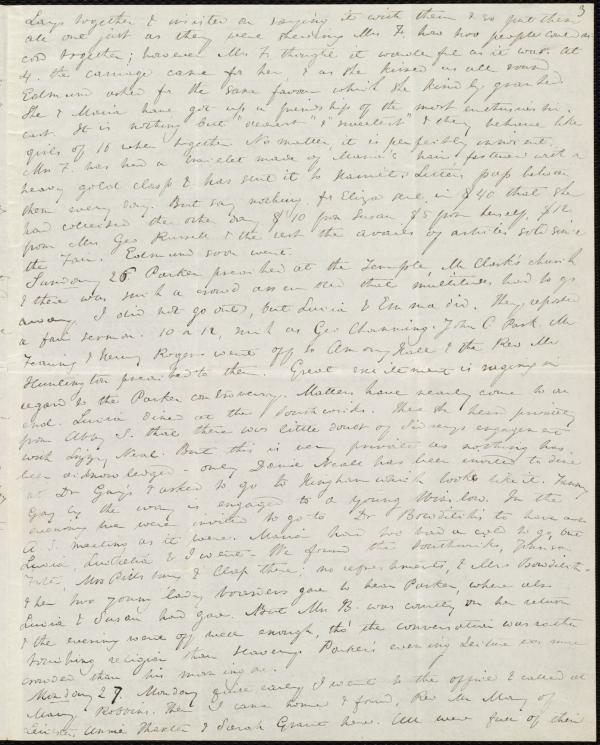 3
Lays together & insisted on saying it with them & so put them
all one just as they were shewing Mrs F. how two people could
cord together; however Mrs F. thought it wonderful as it was. At
4. the carriage came for her, & as she kissed us all round
Edmund asked for the same favour which she kindly granted.
She & Maria have got up a friendship of the most enthusiastic
cast. It is nothing but "dearest" & "sweetest" & they behave like
girls of 16 when together. No matter, it is perfectly innocent.
Mrs F. has had a bracelet made of Maria's hair fastened with a
heavy gold clasp & has sent it to Harriet: Letters pass between
them every day. But say nothing. Eliza sent in $40 that she
had collected the other day $10 from Susan, $5 from herself, $12
from Mrs Geo Russell & the rest the avails of articles sold since
the Fair. Edmund soon went.
Sunday 26 Parker preached at the Temple, Mr Clark's church
& there was such a crowd assembled that multitudes had to go
away. I did not go out, but Lucia & Emma did. They reported
a fair sermon. 10 or 12, such as Geo Channing, John C Park, Mr
Fearing & Henry Rogers went off to Amory Hall & the Rev Mr
Huntington preached to them. Great excitement is raging in
regard to the Parker controversy. Matters have nearly come to an
end. Lucia dined at the Southwicks. There she heard privately
from Abby S. that there was little doubt of Sidney's engagement
with Lizzy Neal. But this is very private as nothing has
been acknowledged - only Daniel Neall has been invited to dine
at Dr Gay's & asked to go to Hingham which looks like it. Fanny
Gay by the way is engaged to a young Winslow. In the
evening we were invited to go to Dr Bowditch's to have an
A S. meeting as it were. Maria had too bad a cold to go, but
Lucia, Lucretia & I went - We found the Southwicks,
Mrs Pillsbury & Clapp there: no refreshments, & Mrs Bowditch
& her two young lady boarders gone to hear Parker, where also
Lucia & Susan had gone. But Mrs B. was courtly on her return
& the evening went off well enough, tho' the conversation was rather
touching religion than slavery. Parker's evening lecture was more
crowded than his morning one.
Monday 27. Monday quite early I went to the office & called at
Mary Robbins. Then I came home & found, Rev Mr May of
Leicester, Annie Thaxter & Sarah Grant here. All were full of their